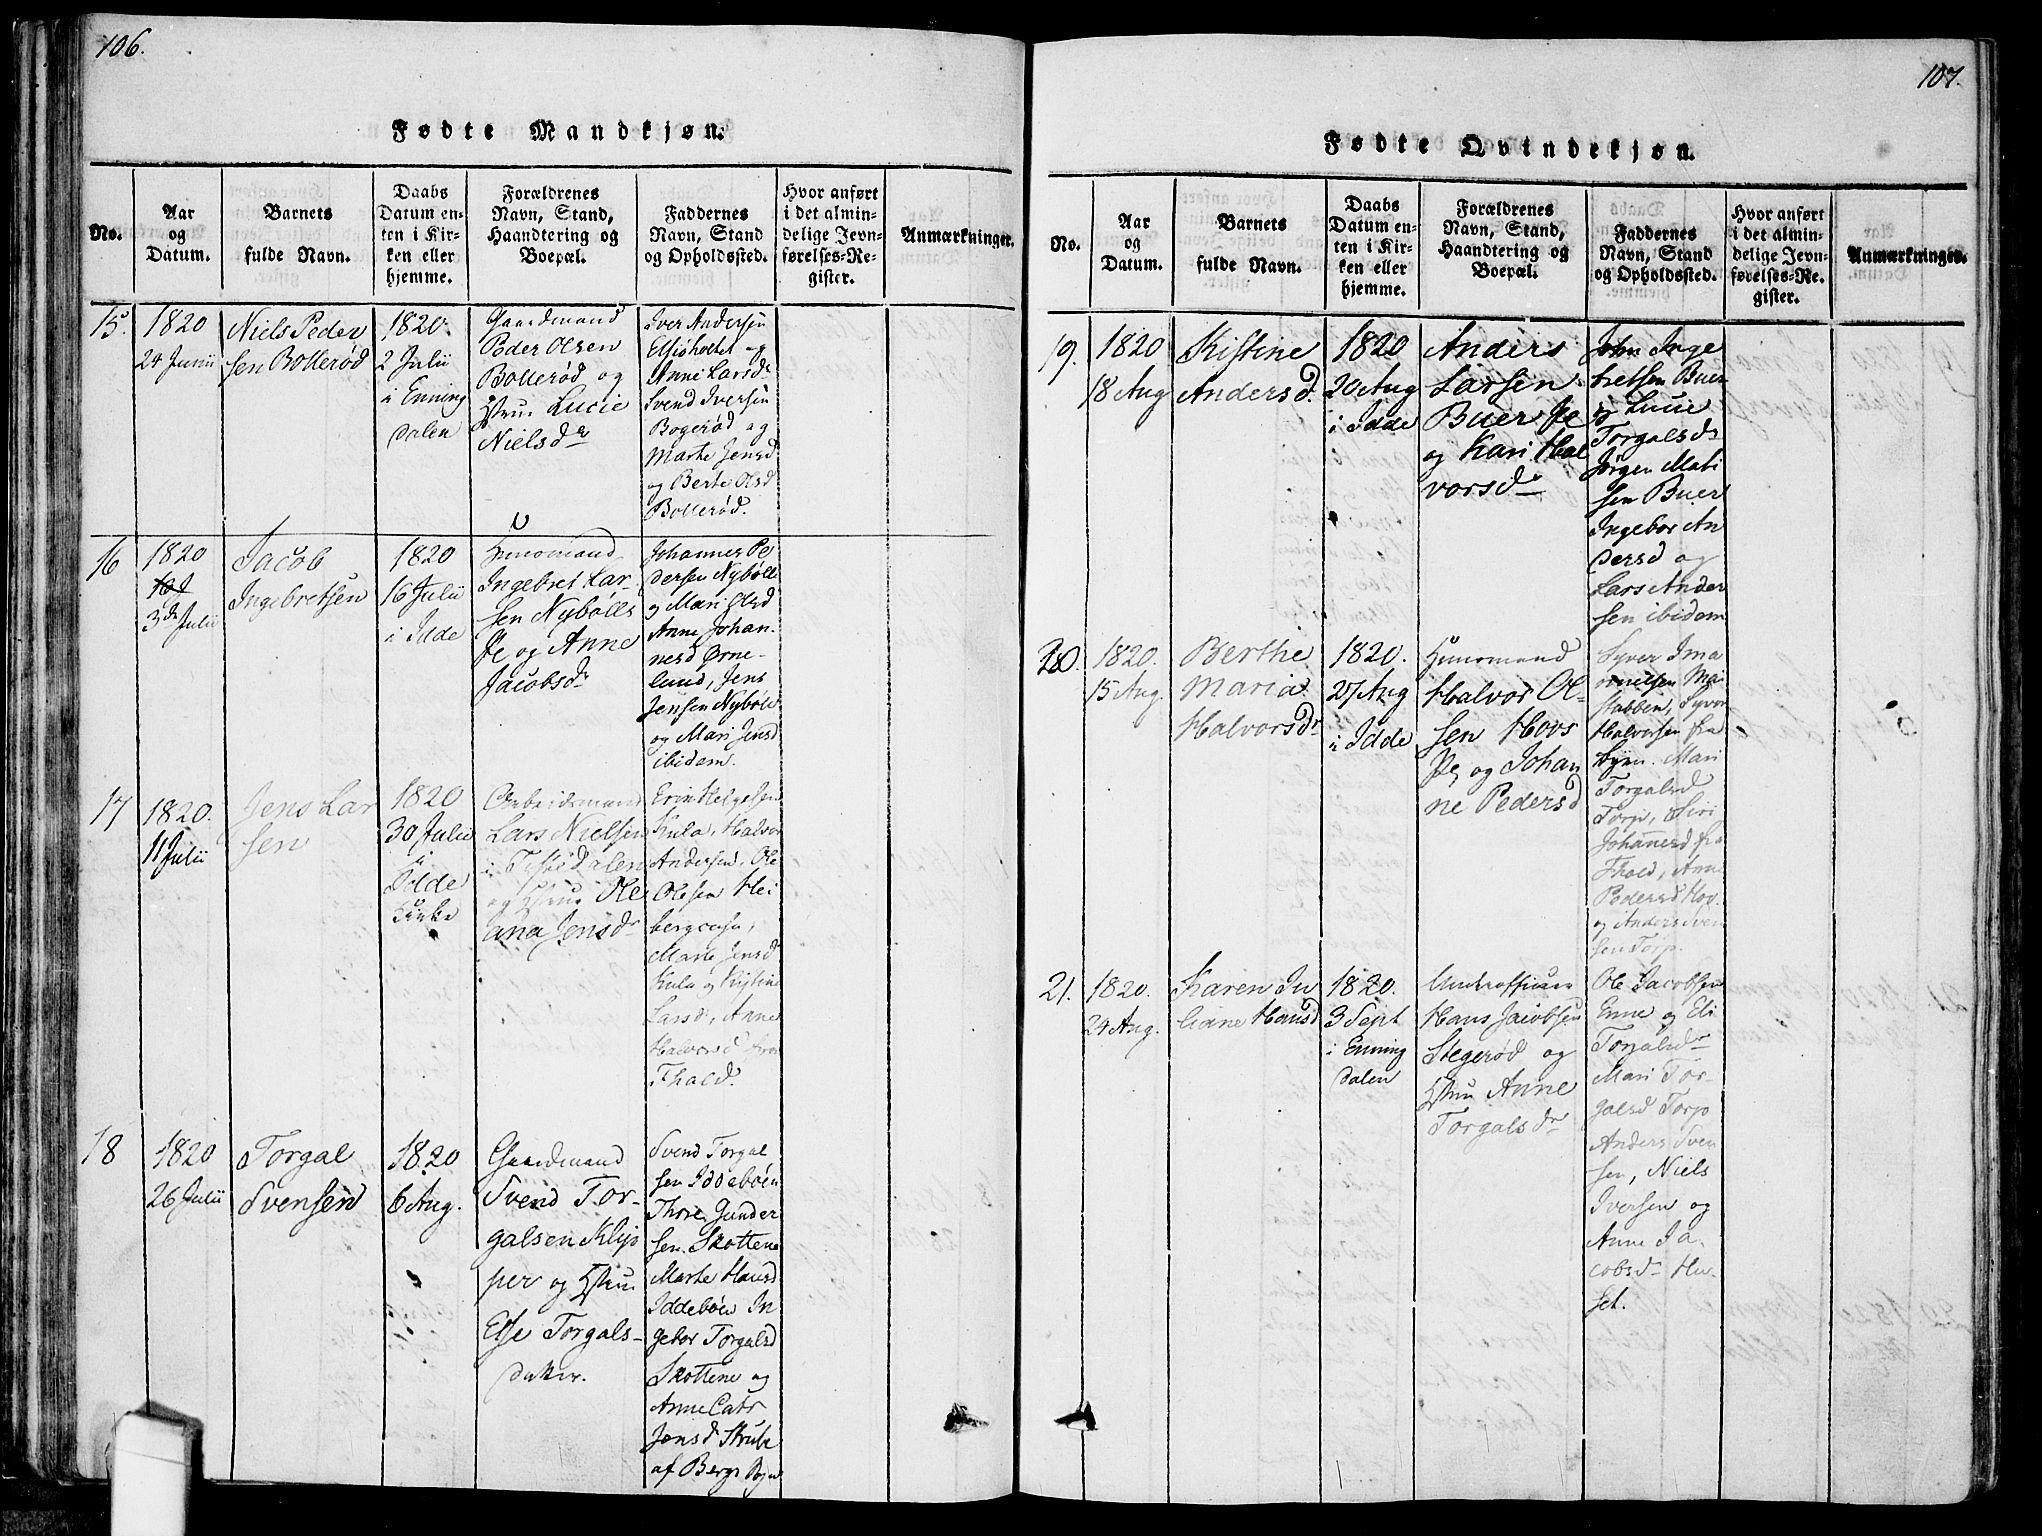 106.
Fødte Mandkjøn.
No.
Aar
og
Datum.
Barnets
fulde Navn.
Daabs
Datum en-
ten i Kir-
ken eller
hjemme.
Forældrenes
Navn, Stand,
Haandtering og
Boepæl.
Faddernes
Navn, Stand
og Opholdssted.
Hvor anført
i det almin-
delige Jevn-
førelses-Re-
gister.
Anmærkninger.
15.
1820
24 Junii
Niels Peder
sen Bollerød
1820.
2 Julii
i Enning
dalen
Gaardmand
Peder Olsen
Bollerød og
Hstru Lucie
Nielsdr
Iver Andersen
og
Anne Larsdr
Svend Iversen
Bogerød og
Marthe Jensd
og Berte Olsd
Bollerød.
16
1820
3de Julii
Jacob
Ingebretsen
1820
16 Julii
i Idde
Huusmand
Ingebret Lar-
sen Nybølls
Pe og Anne
Jacobsdr
Johannes Pe
dersen Nybøll
og Mari Olsd
Anne Johan-
nesd Ørne-
lund, Jens
Jensen Nybøle
og Mari Jensd
ibidem.
17
1820.
11 Julii
Jens Lar
sen
1820
30 Julii
i
Idde
Kirke
Arbeidsmand
Lars Nielsen
i Tistedalen
og Hstru Ole
ana Jensdr
Helgesen
Kula, Halvor
Andersen, Ole
Olesen Hei
bergcasa,
Marie Jensd
Kula og Kistine
Larsd, Anne
Halvorsd fra
Fhald.
18
1820
26 Julii
Torgal
Svensen
1820
6 Aug.
Gaardmand
Svend Tor-
galsen Klip
per og Hstru
Else Torgals-
datter.
Svend Torgal
sen Iddebøen
Thore Gunder
sen Skottene
Marte Hansd
Iddebøen In
gebor Torgalsd
Skottene og
Anne Catr
Jensd Strube
af Bergs Sogn
107.
Fødte Qvindekjøn.
No.
Aar
og
Datum.
Barnets
fulde Navn.
Daabs
Datum en-
ten i Kir-
ken eller
hjemme.
Forældrenes
Navn, Stand,
Haandtering og
Boepæl.
Faddernes
Navn, Stand
og Opholdssted.
Hvor anført
i det almin-
delige Jevn-
førelses-Re-
gister.
Anmærkninger.
19.
1820
18 Aug
Kistine
Andersd.
1820
20 Aug
i Idde
Anders
Larsen
Buer Pe
og Kari Hal
vorsdr
John Inge
bretsen Buer
og Lucie
Torgalsdr
Jørgen Mati
sen Buer
Ingebor An
dersd og
Lars Ander
sen ibidem
20.
1820.
15 Aug.
Berthe
Maria
Halvorsdr
1820.
27 Aug
i Idde
Huusmand
Halvor Ol-
sen Hovs
Pe, og Johan
ne Pedersd
Syver Ima
nuelsen Ma
stubben, Syver
Halvorsen fra
Byen. Mari
Torgalsd
Torp, Siri
Johannesd fra
Fhald, Anne
Pedersd Hov
og Anders Sven
sen Torp.
21.
1820.
24 Aug.
Karen Ju
liane Hansd
1820.
3 Sept
i Enning
dalen
Underofficeer
Hans Jacobsen
Stegerød og
Hstru Anne
Torgalsdr
Ole Jacobsen
Enne og Eli
Torgalsdr
Mari Tor-
galsd Torp
Anders Sven
sen, Niels
Iversen og
Anne Ja-
cobsdr Hu-
set.